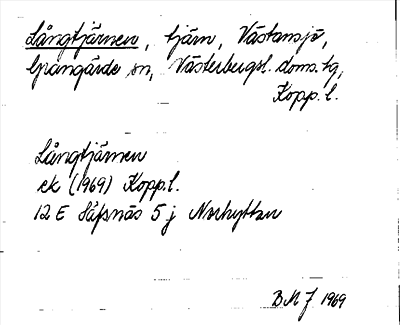 Långtjärnen, tjärn, Västansjö,
Grangärde sn, Västerbergsl. doms. tg,
Kopp. l.
Långtjärnen
ek (1969) Kopp. l.
12 E Säfsnäs 5 j Norhyttan
B M J 1969